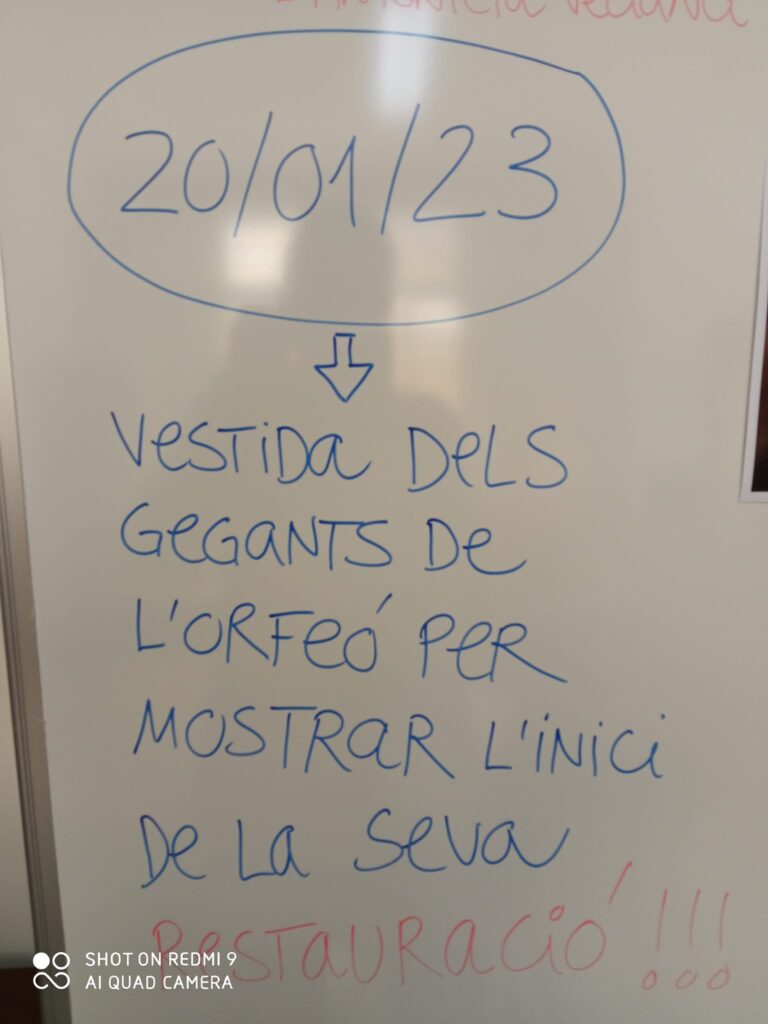 20/01/23
VESTIDA DELS
GEGANTS DE
L'ORFEÓ PER
MOSTRAR L'INICI
DE LA SEVA
RESTAURACIÓ!!!
SHOT ON REDMI 9
AI QUAD CAMERA